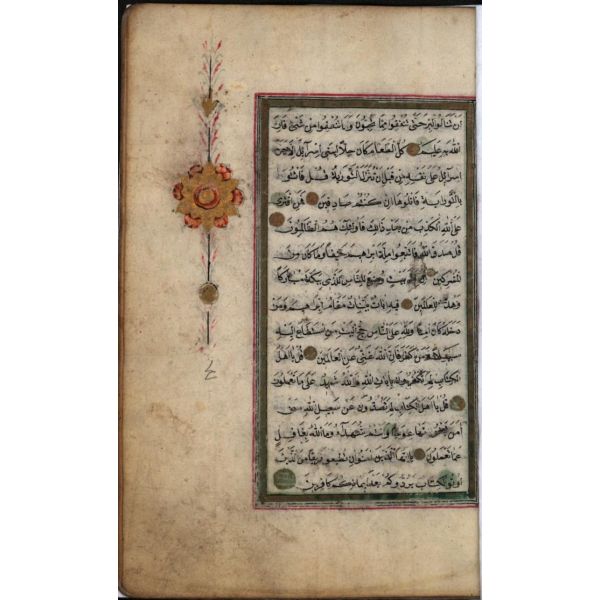 لن تنالوا البر حتى تنفقوا مما تحبون وما تنفقوا من شئ فان
الله به عليم كل الطعام كان حلا لبنى اسرآئل الا ما حرم
اسرآئل على نفسه من قبل ان تنزل التورية قل فاتوا
بالتوراية فاتلوها ان كنتم صادقين فمن افترى
على الله الكذب من بعد ذالك فاولئك هم الظالمون
قل صدق الله فاتبعوا ملة ابراهيم حنيفا وما كان من
المشركين ان اول بيت وضع للناس للذى ببكة مباركا
وهدى للعالمين فيه ايات بينات مقام ابراهيم ومن
دخله كان امنا ولله على الناس حج البيت من استطاع اليه
سبيلا ومن كفر فان الله غنى عن العالمين قل يا اهل
الكتاب لم تكفرون بايات الله والله شهيد على ما تعملون
قل يا اهل الكتاب لم تصدون عن سبيل الله من
امن تبغونها عوجا وانتم شهدآء وما الله بغافل
عما تعملون يا ايها الذين امنوا ان تطيعوا فريقا من الذين
اوتوا الكتاب يردوكم بعد ايمانكم كافرين